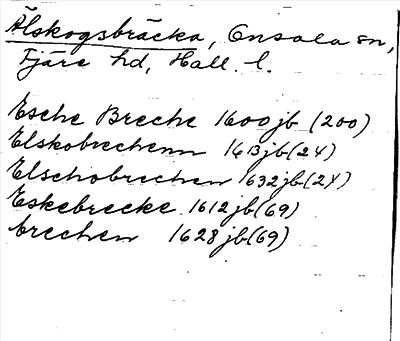 Älskogsbräcka, Onsala sn,
Fjäre hd, Hall. l.
Esche Breche 1600 jb (200)
Elskobrechenn 1613 jb (24)
Elschobrechen 1632 jb (24)
Eskebrecke 1612 jb (69)
brechen 1628 jb (69)